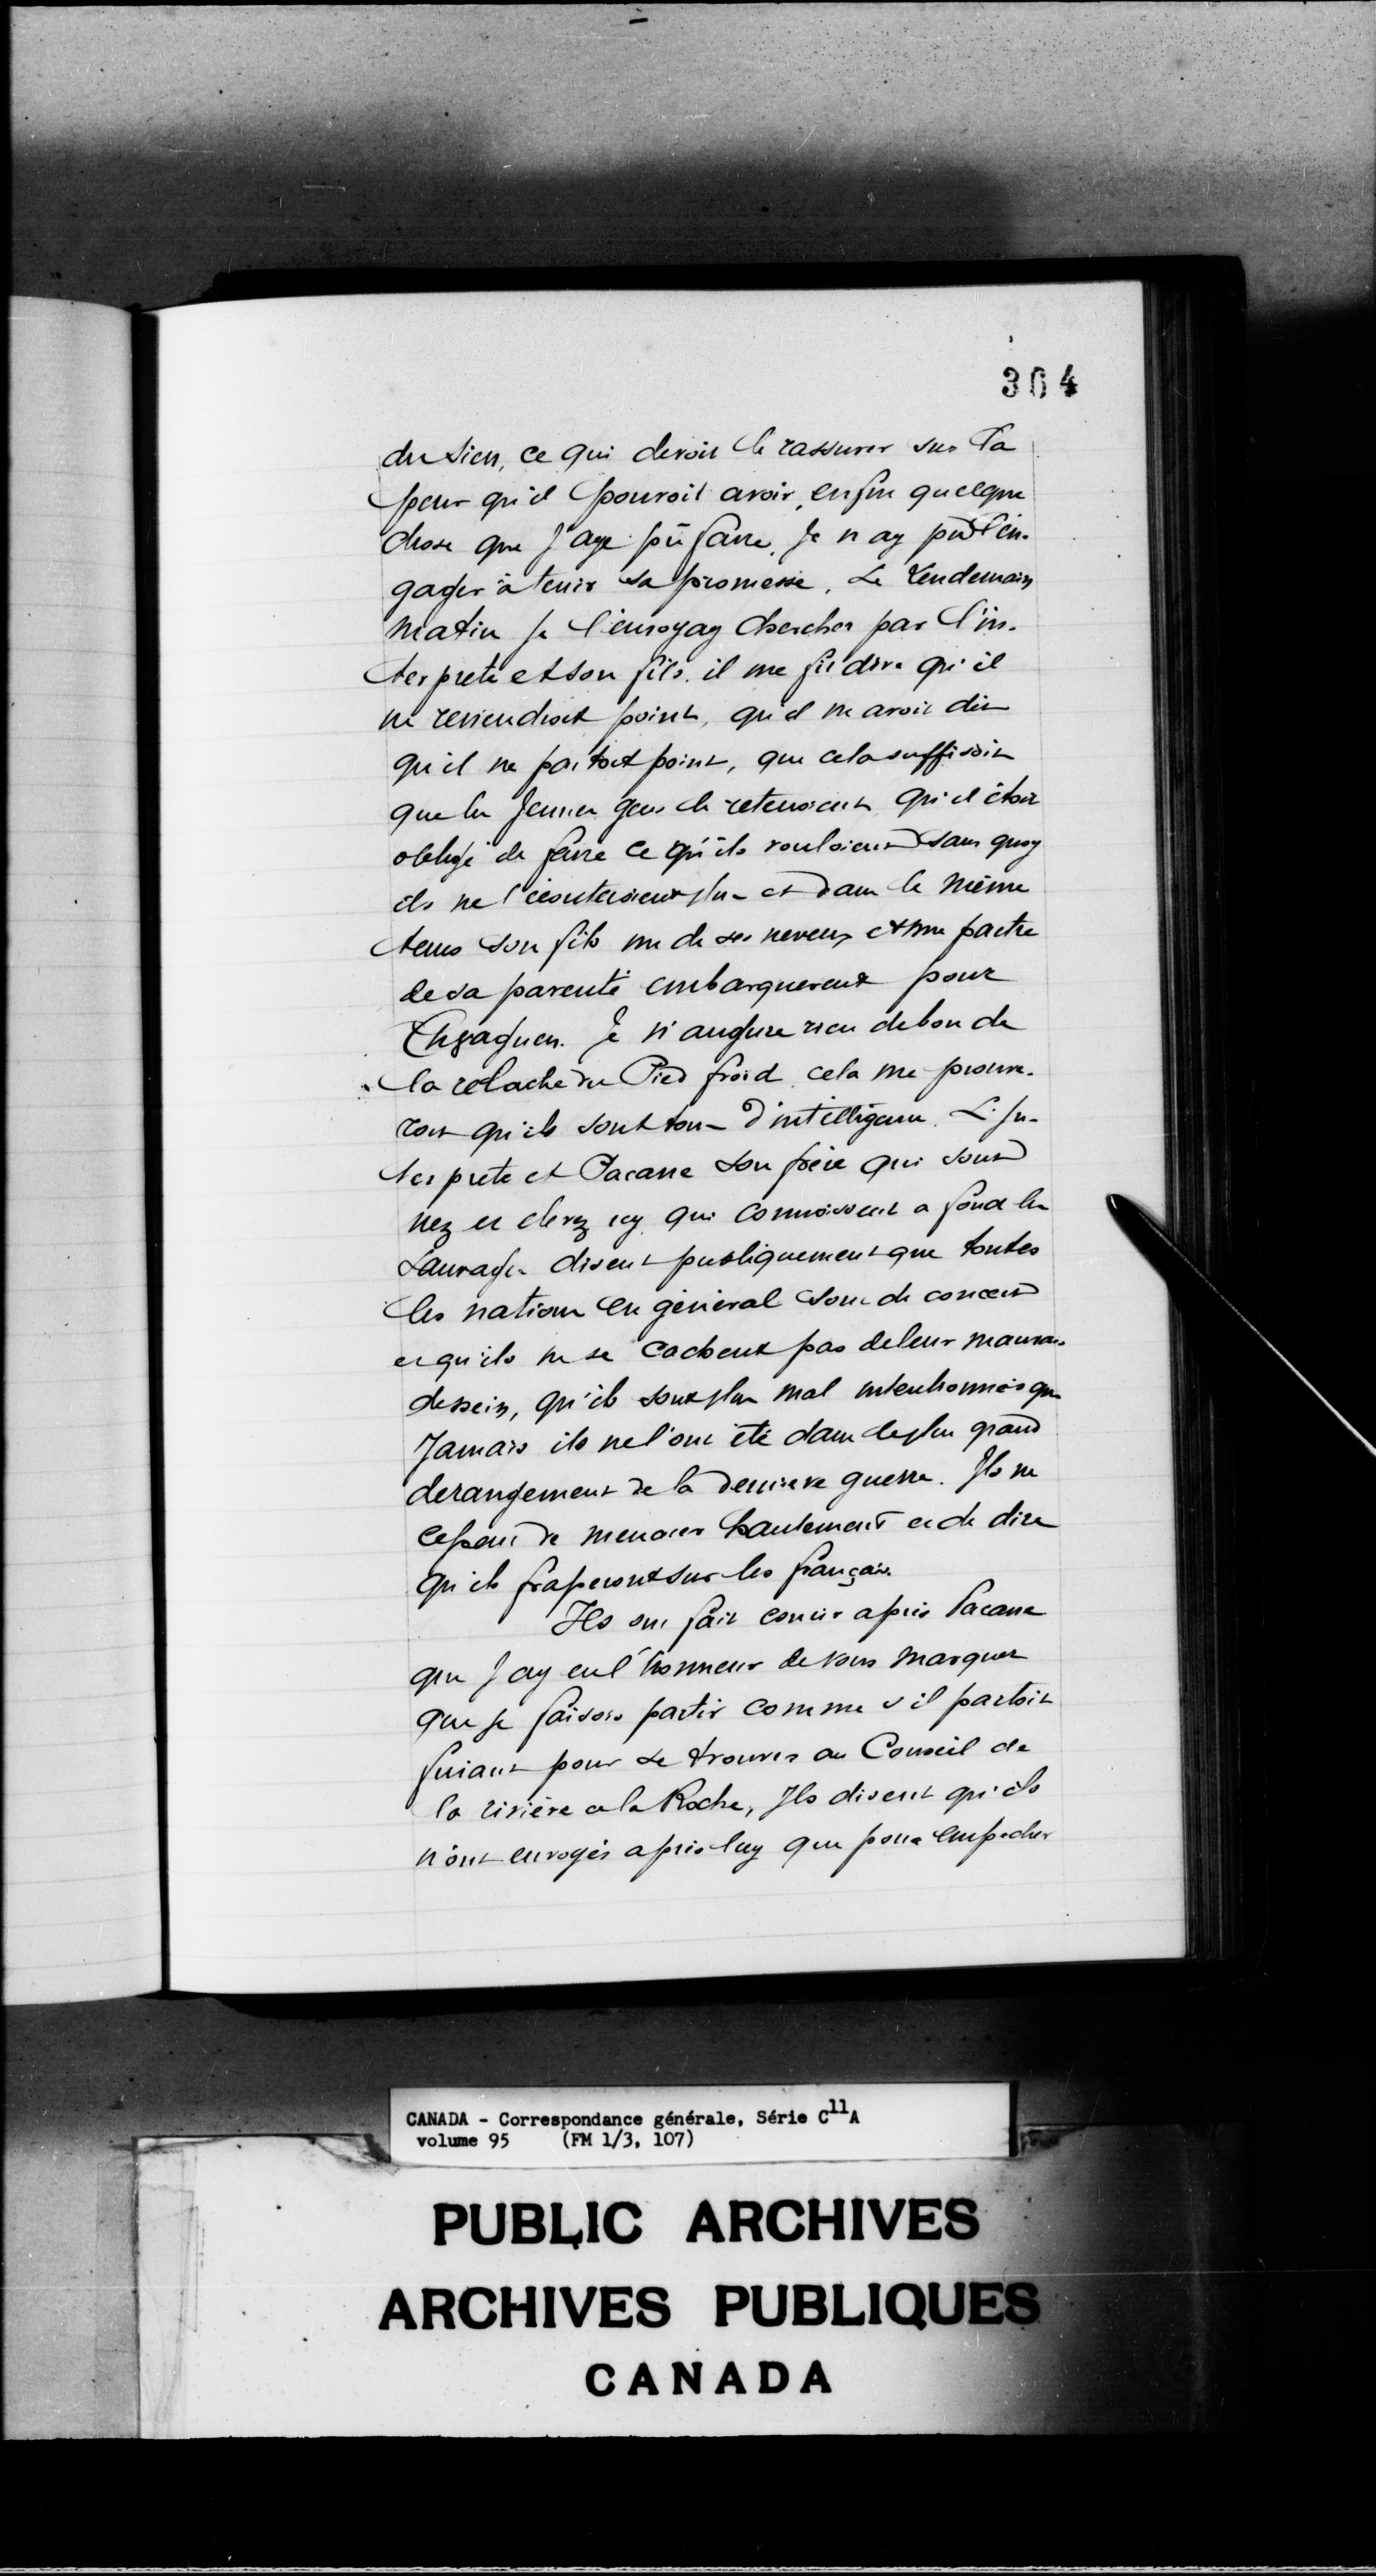 364
du sien, ce qui devoit le rassurer sur la
peur qu'il pouroit avoir, enfin quelque
chose que J'aye pû faire, Je n'ay pû l'en-
gager à tenir sa promesse. Le Lendemain
matin je l'envoyay chercher par l'in-
terprete et son fils. il me fit dire qu'il
ne reviendroit point, qu'il m'avoit dit
qu'il ne partoit point, que cela suffisoit
que les Jeunes gens le retenoient qu'il étoit
obligé de faire ce qu'ils vouloient sans quoy
ils ne l'écouteroient plus et dans le même
tems son fils un de ses neveux et une partie
de sa parenté embarquerent pour
Je n'augure rien de bon de
la relache du Pied froid, cela me prouve-
roit qu'ils sont tous d'intelligence. L'In-
terprete et Pacane son frère qui sont
nez et elevez icy qui connoissent a fond les
Sauvages disent publiquement que toutes
les nations en général sont de concert
et qu'ils ne se cachent pas de leur mauvais
dessein, qu'ils sont plus mal intentionnés que
Jamais ils ne l'ont été dans le plus grand
derangement de la derniere guerre. Ils ne
cessent de menacer hautement et de dire
qu'ils fraperont sur les français.
Ils ont fait courir après Pacane
que J'ay eu l'honneur de vous marquer
que je faisois partir comme s'il partoit
fuiant pour se trouver au Conseil de
la rivière a la Roche, Ils disent qu'ils
n'ont envoyés après luy que pour empecher
CANADA - Correspondance générale, Série C11A
volume 95 (FM 1/3, 107)
PUBLIC ARCHIVES
ARCHIVES PUBLIQUES
CANADA